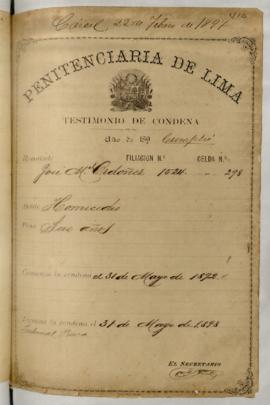 Cárcel, 22 de Febro de 1897
PENITENCIARIA DE LIMA
TESTIMONIO DE CONDENA
Año de 189 Cumplió
Rematado FILIACION N.º CELDA N.º
José Ma. Ordoñes 1024 298
Delito Homicidio
Pena Seis años
Comienza la condena el 31 de Mayo de 1892
Termina la condena el 31 de Mayo de 1898
Tribunal Piura
EL SECRETARIO